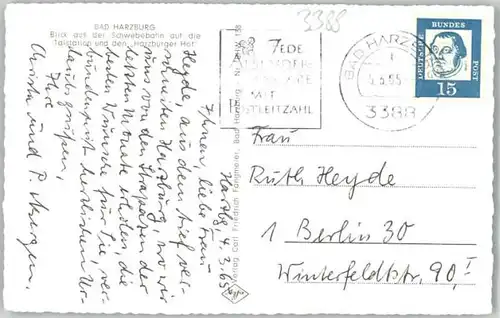 BAD HARZBURG
Blick aus der Schwebebahn auf die
Talstation und den Harzburger Hof
3388
Harzbg. 4.3.65
Ihnen, liebe Frau
Heyde, aus dem tief ver-
schneiten Harzburg, wo wir
uns von den Strapazen der
letzten Monate erholen, die
besten Wünsche für Sie, ver-
bunden mit herzlichen Ur-
laubsgrüßen,
Ihre
Christa und P.
Verlag Carl Friedrich Fangmeier, Bad Harzburg
JEDE
MIT
POSTLEITZAHL
BAD HARZBURG
3388
DEUTSCHE BUNDES POST
15
Frau
Ruth Heyde
1 Berlin 30
Winterfeldtstr. 90, I